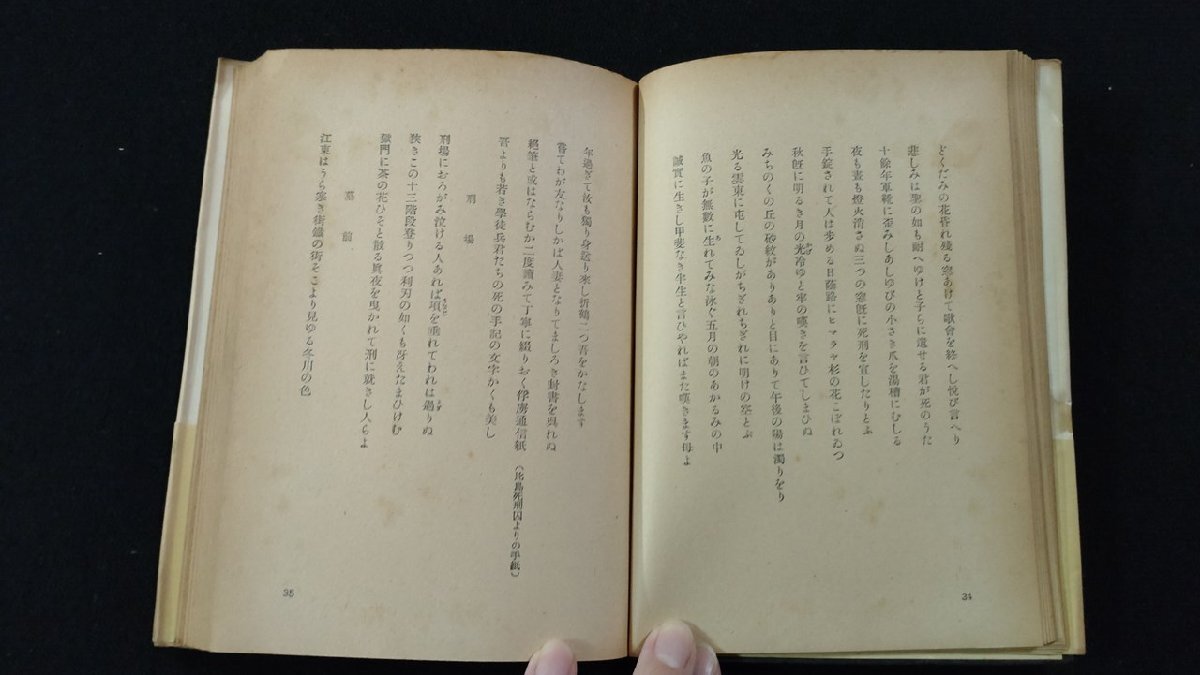 どくだみの花昏れ殘る窓あけて歌會を終へし悦び言へり
悲しみは聖の如も耐へゆけと子らに遺せる君が死のうた
十餘年軍靴に歪みしあしゆびの小さき爪を湯槽にむしる
夜も晝も燈火消さぬ三つの窓旣に死刑を宣したりとふ
手錠されて人は歩める日蔭路にヒマラヤ杉の花こぼれゐつ
秋旣に明るき月の光冷ゆと牢の嘆きを言ひてしまひぬ
みちのくの丘の砂紋がありありと目にありて午後の陽は濁りをり
光る雲東に屯してゐしがちぎれちぎれに明けの空とぶ
魚の子が無數に生れてみな泳ぐ五月の朝のあかるみの中
誠實に生きし甲斐なき半生と言ひやればまた嘆きます母よ
34
年過ぎて汝も獨り身訟り來し折鶴二つ吾をかなします
嘗てわが友なりしかば人妻となりてましろき封書を吳れぬ
絕筆と或はならむか二度讀みて丁寧に綴りおく俘虜通信紙
(比島死刑囚よりの手紙)
吾よりも若き學徒兵君たちの死の手記の文字かくも美し
刑場
刑場におろがみ泣ける人あれば項を垂れてわれは過りぬ
狹きこの十三階段登りつつ利刃の如くも冴えたまひけむ
獄門に茶の花ひそと散る眞夜を曳かれて刑に就きし人らよ
墓前
江東はうら寒き街鐵の街そこより見ゆる冬月の色
35